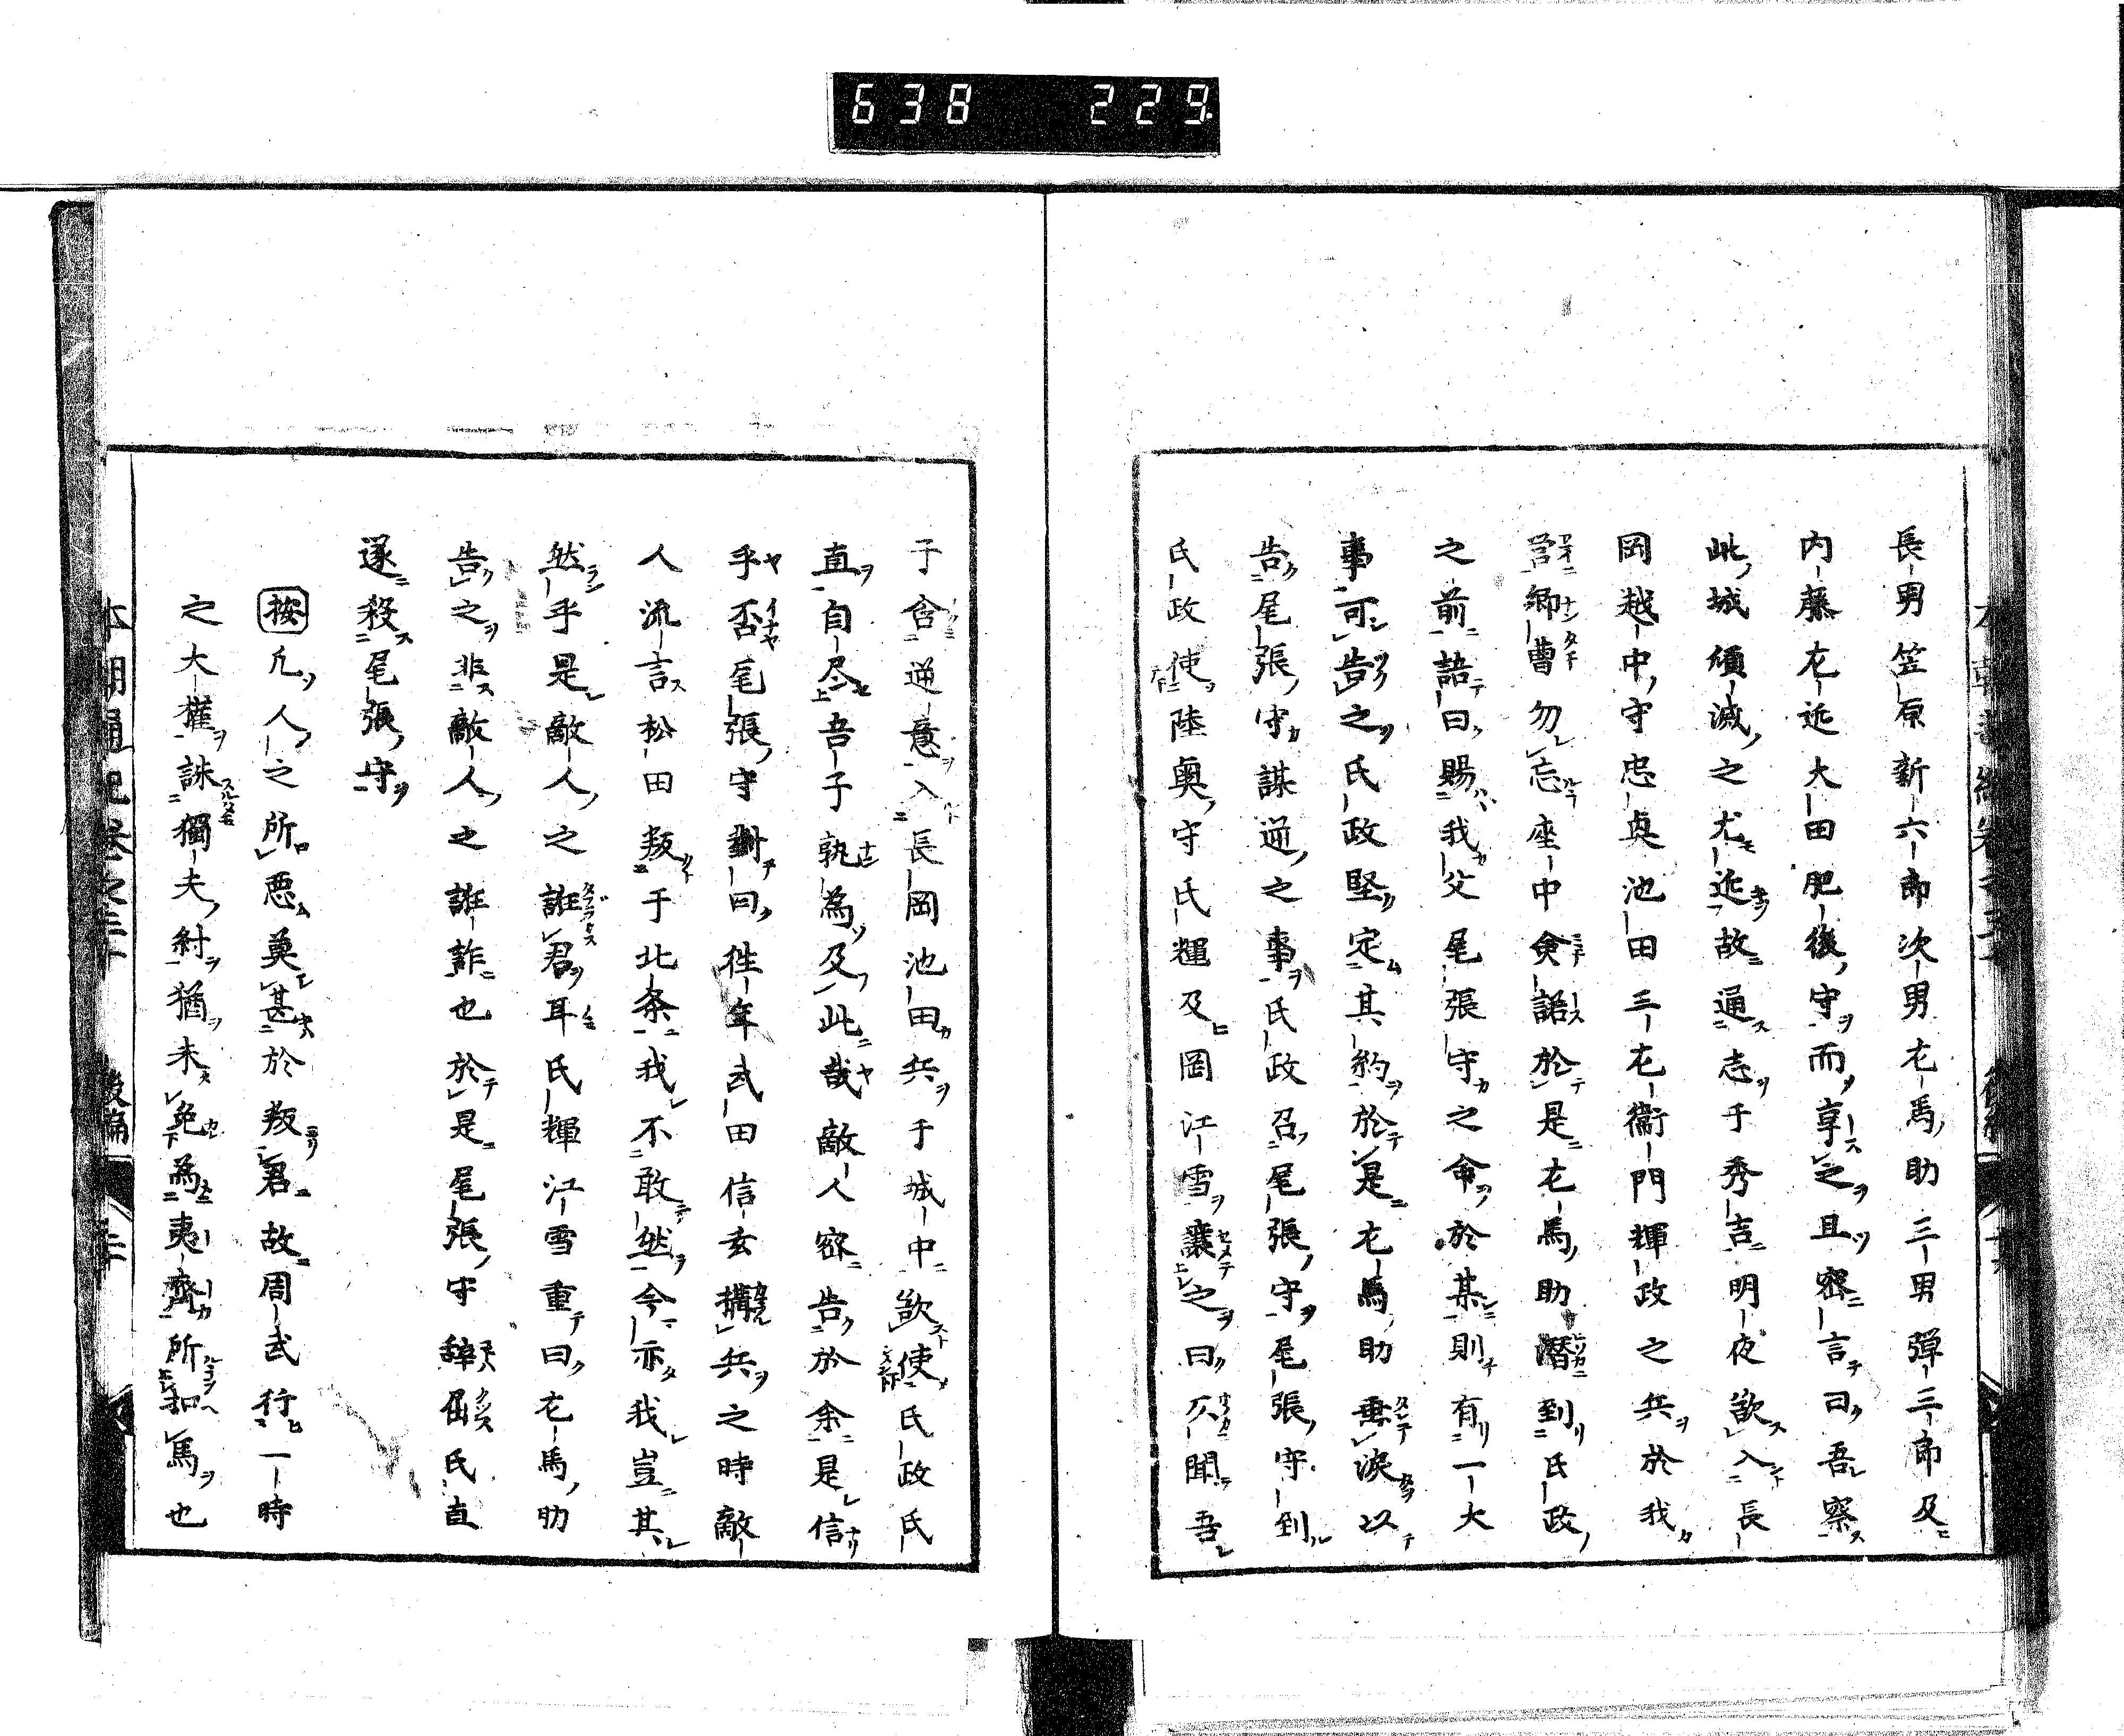 638 229
長男笠原新六郎次男左馬助三男弾三郎及
内藤左近大田肥後守而享之且密言曰吾察
此城傾滅之尤近故通志于秀吉明夜欲入長
岡越中守忠奥池田三左衞門輝政之兵於我
営卿曹勿忘座中僉諾於是左馬助潜到氏政
之前語曰賜我父尾張守之命於某則有一大
事可告之氏政堅定其約於是左馬助垂涙以
告尾張守謀逆之事氏政召尾張守尾張守到
氏政使陸奥守氏輝及岡江雪譲之曰仄聞吾
子含逆意入長岡池田兵于城中欲使氏政氏
直自尽吾子孰為及此哉敵人密告於余是信
乎否尾張守對曰往年武田信玄搆兵之時敵
人流言松田叛于北条我不敢然今亦我豈其
然乎是敵人之誑君耳氏輝江雪重曰左馬助
告之非敵人之誑詐也於是尾張守辞屈氏直
遂殺尾張守
按凢人之所悪莫甚於叛君故周武行一時
之大権誅獨夫紂猶未免為夷齊所扣馬也
本朝通紀巻之二十 後編